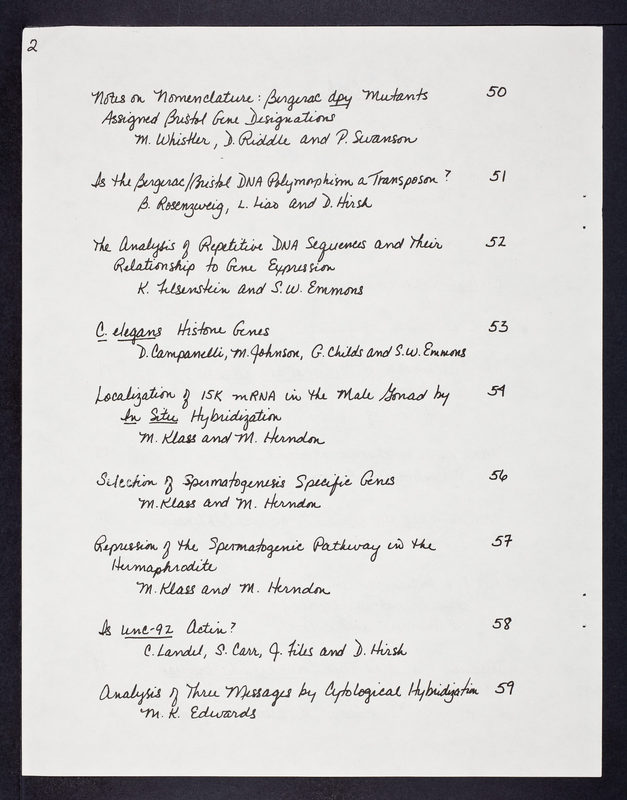 2
Notes on Nomenclature: Bergerac dpy Mutants 50
Assigned Bristol Gene Designations
M. Whistler, D. Riddle and P. Swanson
Is the Bergerac/Bristol DNA Polymorphism a Transposon? 51
B. Rosenzweig, L. Liao and D. Hirsh
The Analysis of Repetitive DNA Sequences and Their 52
Relationship to Gene Expression
K. Filsenstein and S.W. Emmons
C. elegans Histone Genes 53
D. Campanelli, M. Johnson, G. Childs and S.W. Emmons
Localization of 15K mRNA in the Male Gonad by 54
In Situ Hybridization
M. Klass and M. Herndon
Selection of Spermatogenesis Specific Genes 56
M. Klass and M. Herndon
Repression of the Spermatogenic Pathway in the 57
Hermaphrodite
M. Klass and M. Herndon
Is unc-92 Actin? 58
C. Landel, S. Carr, J. Files and D. Hirsh
Analysis of Three Messages by Cytological Hybridization 59
M. K. Edwards